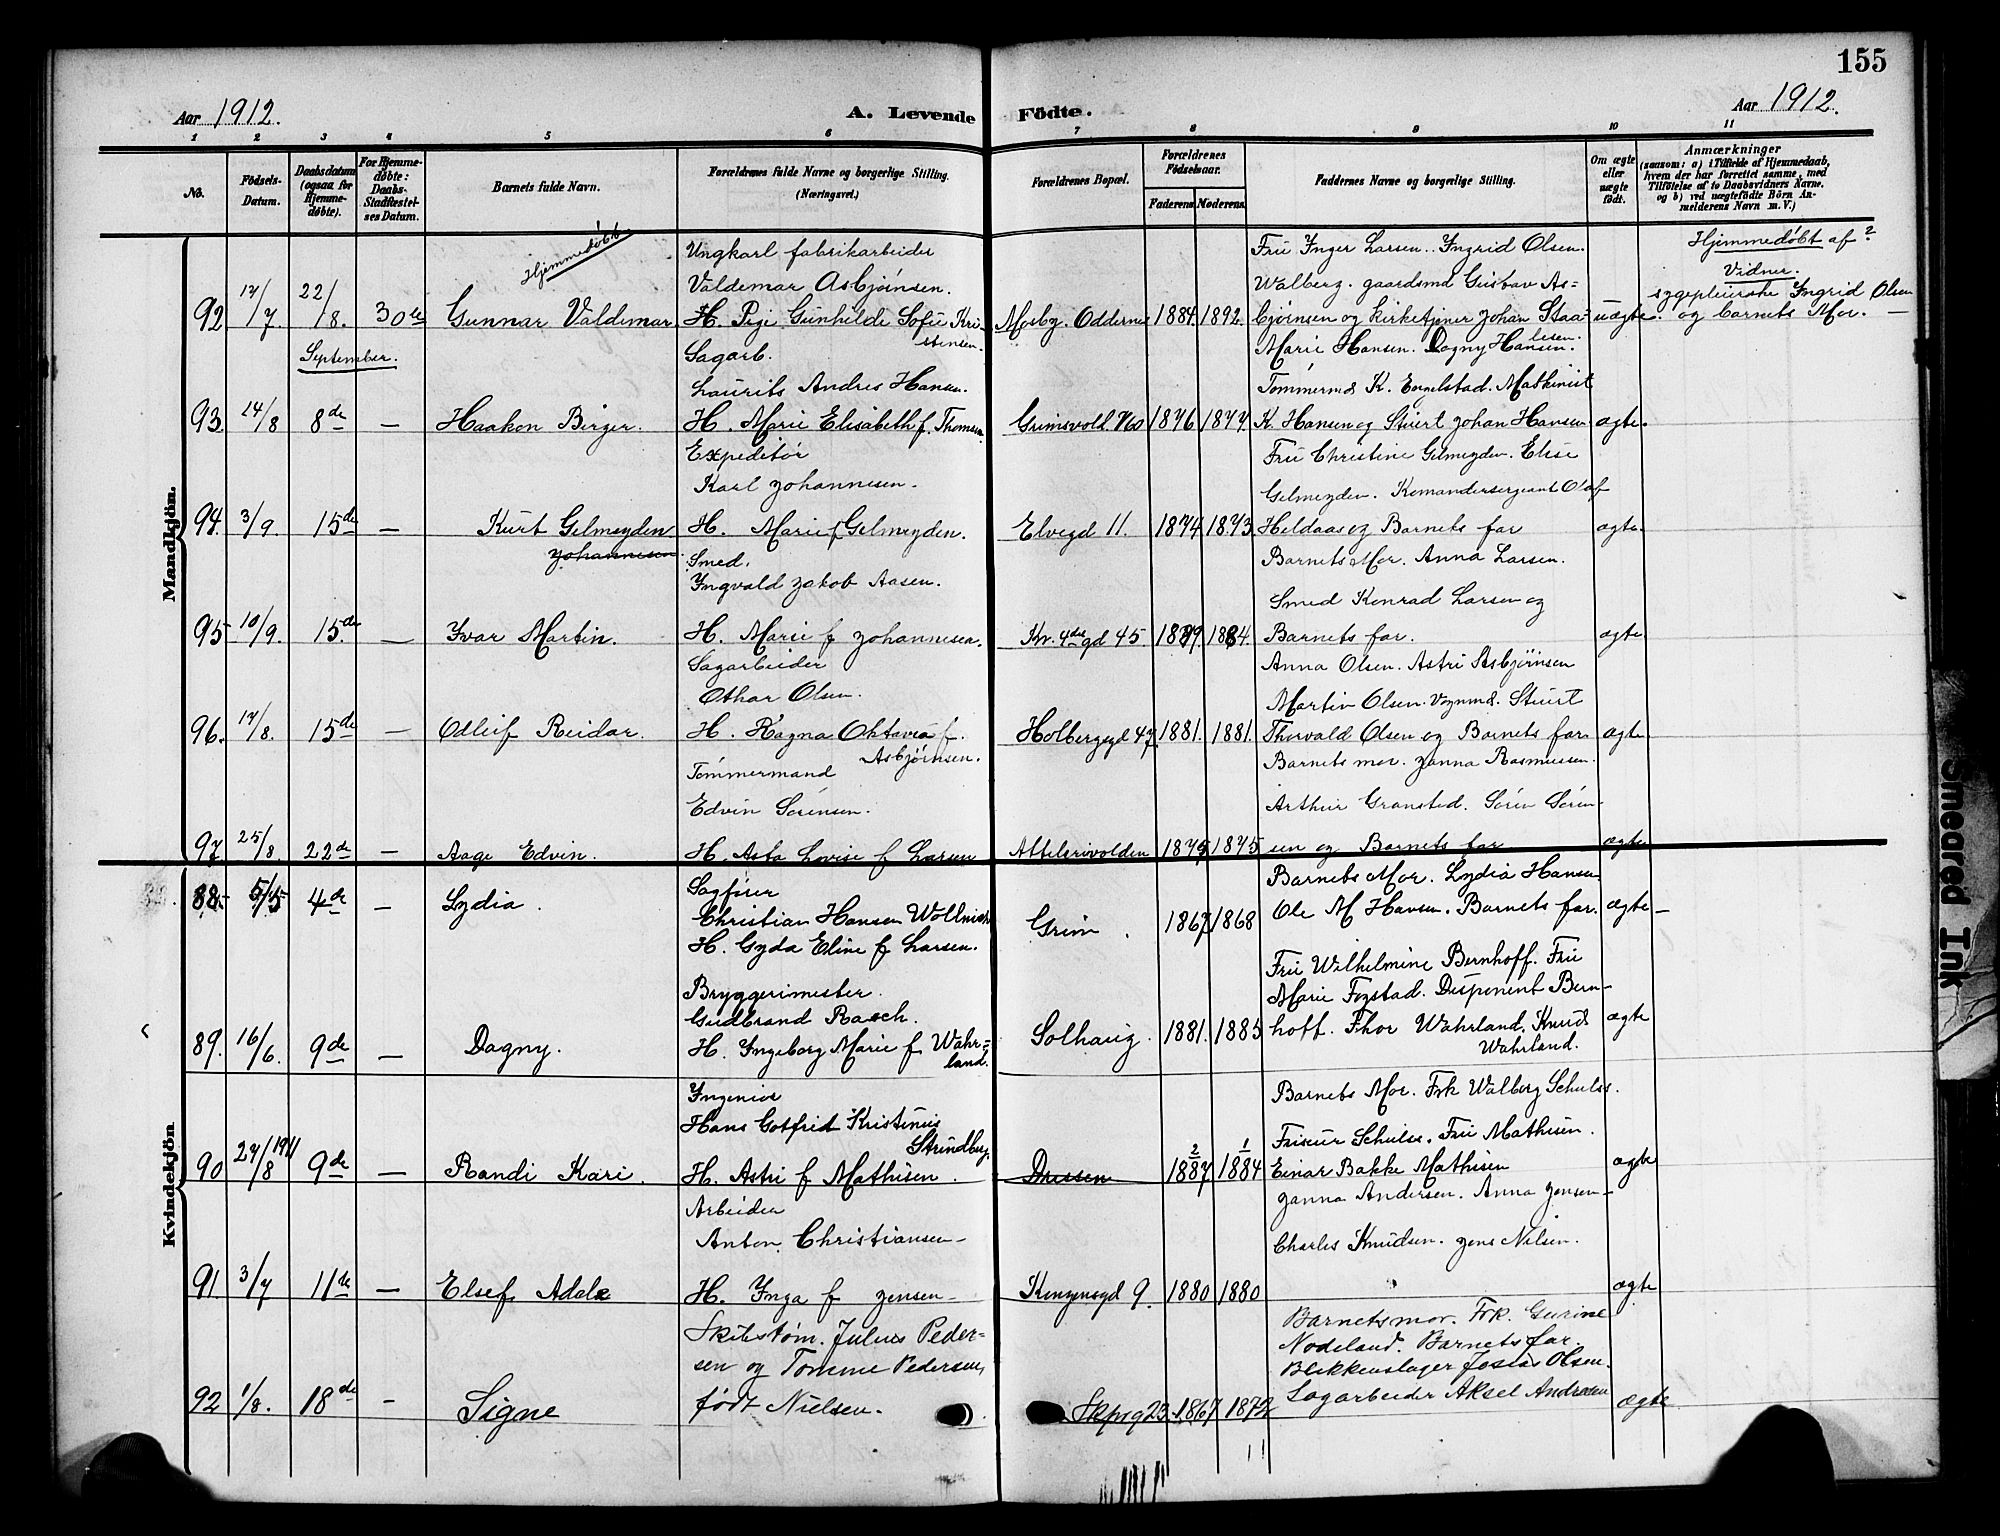 155
Aar 1912.
A. Levende Födte.
Aar 1912.
1 2 3 4 5 6 7 8 9 10 11
No.
Födsels-Datum.
Daabsdatum (ogsaa for Hjemme-døbte).
For Hjemme-døbte: Daabs-Stadfæstel-ses Datum.
Barnets fulde Navn.
Forældrenes fulde Navne og borgerlige Stilling. (Næringsvei.)
Forældrenes Bopæl.
Forældrenes Födselsaar.
Faderens. Moderens.
Faddernes Navne og borgerlige Stilling.
Om ægte eller uægte födt.
Anmærkninger
(saasom: a) i Tilfælde af Hjemmedaab,
hvem der har forrettet samme, med
Tilföielse af to Daabsvidners Navne.
og b) ved uægtefödte Börn An-
melderens Navn m. V.)
Mandkjön.
Hjemmedøbt
Ungkarl fabrikarbeider
Valdemar Asbjørnsen.
92 17/7. 22/8. 30te Gunnar Valdemar H. Pige Gunhilde Sofie Kri-
stensen.
Mosby. Oddernes 1884. 1892.
Frü Inger Larsen. Ingrid Olsen.
Walberg. gaardsmd Gustav As=
bjørnsen og Kirketjener Johan Staa=
lesen.
uægte.
Hjemmedøbt af ?
Vidner.
sygepleierske Ingrid Olsen
og barnets Mor. —
September.
Sagarb.
Laurits Andres Hansen.
93. 14/8 8de — Haakon Birger. H. Marie Elisabeth f. Thomsen
Grimsvold. 1876 1877.
Marie Hansen. Dagny Hansen.
Tømmermd K. Engelstad. Mathinist
K. Hansen og Stuert Johan Hansen
ægte.
Expeditør
Karl Johannesen.
94. 3/9. 15de — Kurt Gelmeyden H. Marie f Gelmeyden.
Johannesen
Elvegd 11. 1874 1873
Frü Christine Gelmeyden. Elise
Gelmeyden. Komandersergeant Olaf
Heldaas og Barnets far
ægte.
Smed.
Yngvald Jakob Aasen.
95 10/9. 15de — Yvar Martin. H. Marie f Johannesen.
Kv. 4de gd 45. 1884.
Barnets Mor. Anna Larsen.
Smed Konrad Larsen og
Barnets far.
ægte
Sagarbeider
Othar Olsen.
96. 17/8. 15de — Odleif Reidar. H. Ragna Oktavia f.
Asbjørnsen.
Holbergsgd 47. 1881. 1881.
Anna Olsen. Astri Asbjørnsen
Martin Olsen. Vognmd. Stuert
Thorvald Olsen og Barnets far
ægte
Tømmermand
Edvin Sørensen.
97 25/8. 22de — Aage Edvin. H. Asta Lovise f Larsen
1875 1875
Barnets mor. Janna Rasmussen.
Arthur Gransted. Søren Søren-
sen og Barnets far
ægte
Kvindekjön
Sagfører
88. 5/5 4de — Lydia. Christian Hansen
H. Gyda Eline f Larsen.
Grim. 1867 1868
Barnets Mor. Lydia Hansen
Ole M Hansen. Barnets far.
ægte —
Bryggerimester.
Gudbrand Rasch.
89. 16/6. 9de — Dagny. H. Ingeborg Marie f Wahr=
land.
Solhaug. 1881. 1885
Frü Wilhelmine Bernhoff. Frü
Marie Fogstad. Disponent Bern-
hoff. Thor Wahrland. Knud
Wahrland.
ægte
Ingeniør
Hans Gotfrid Kristinius
Strindberg.
90 27/8 1911 9de — Randi Kari. H. Astri f Mathisen.
2 1
1887 1884
Barnets Mor. Frk Walborg Schulss.
Friseur Schulss. Frü Mathisen.
Einar Bakke Mathisen
ægte
Arbeider
Anton Christiansen —
91 3/7 11te — Elsef Adele H. Inga f Jensen —
Kongensgd 9. 1880 1880
Janna Andersen. Anna Jensen —
Charles Knudsen. Jens Nilsen.
ægte
Skibstøm. Julius Peder-
sen og Tomine Pedersen,
92 1/8. 18de - Signe født Nielsen.
23. 1867 1872
Barnets mor. Frk. Gurine
Nodeland. Barnets far.
Blikkenslager Josias Olsen.
Sagarbeider Aksel Andresen
ægte
Smeared Ink